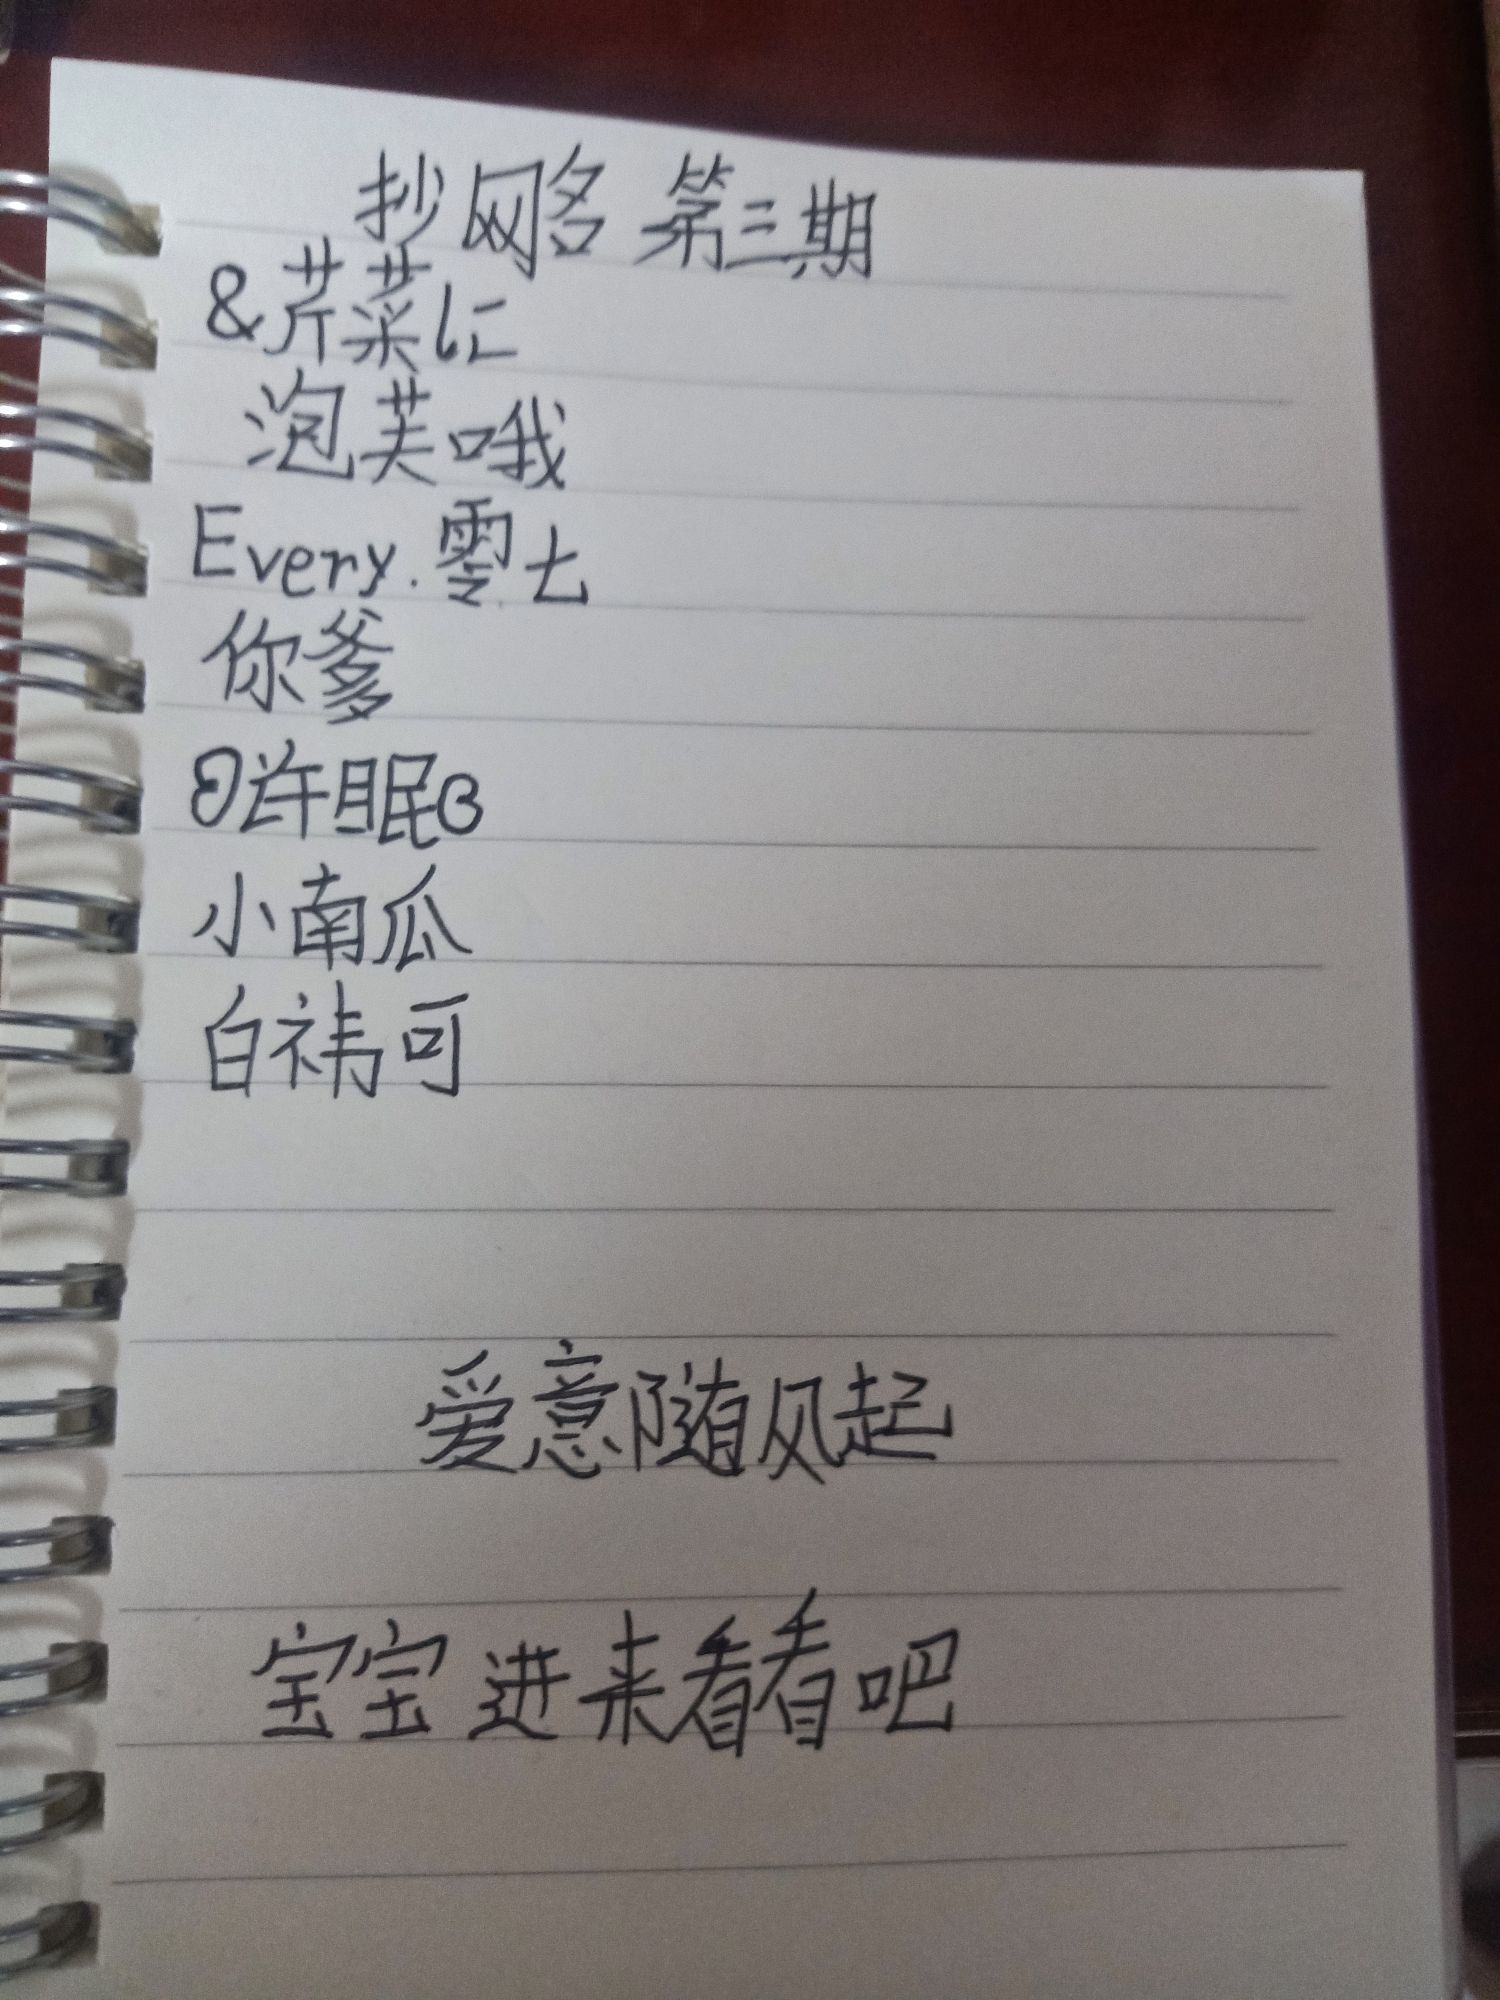 抄网名 第三期
&芹菜
泡芙哦
Every.零七
你爹
许眠
小南瓜
白祎可
爱意随风起
宝宝进来看看吧